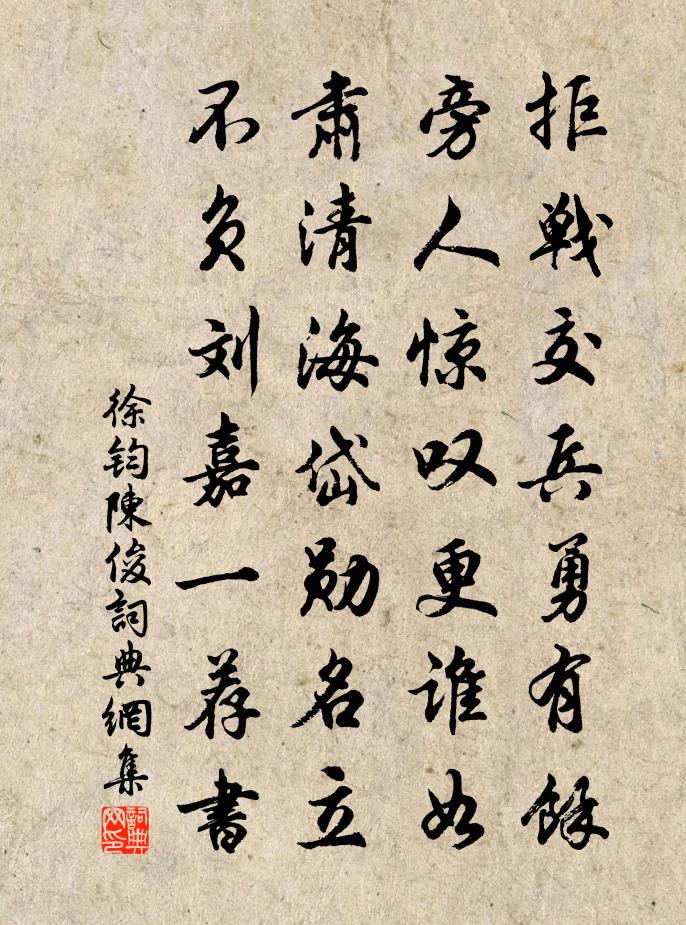 拒戦交兵勇有馀
旁人惊叹更谁如
肃清海岱勋名立
不负刘嘉一荐書
徐钧陳俊詞典網集
詞典網印